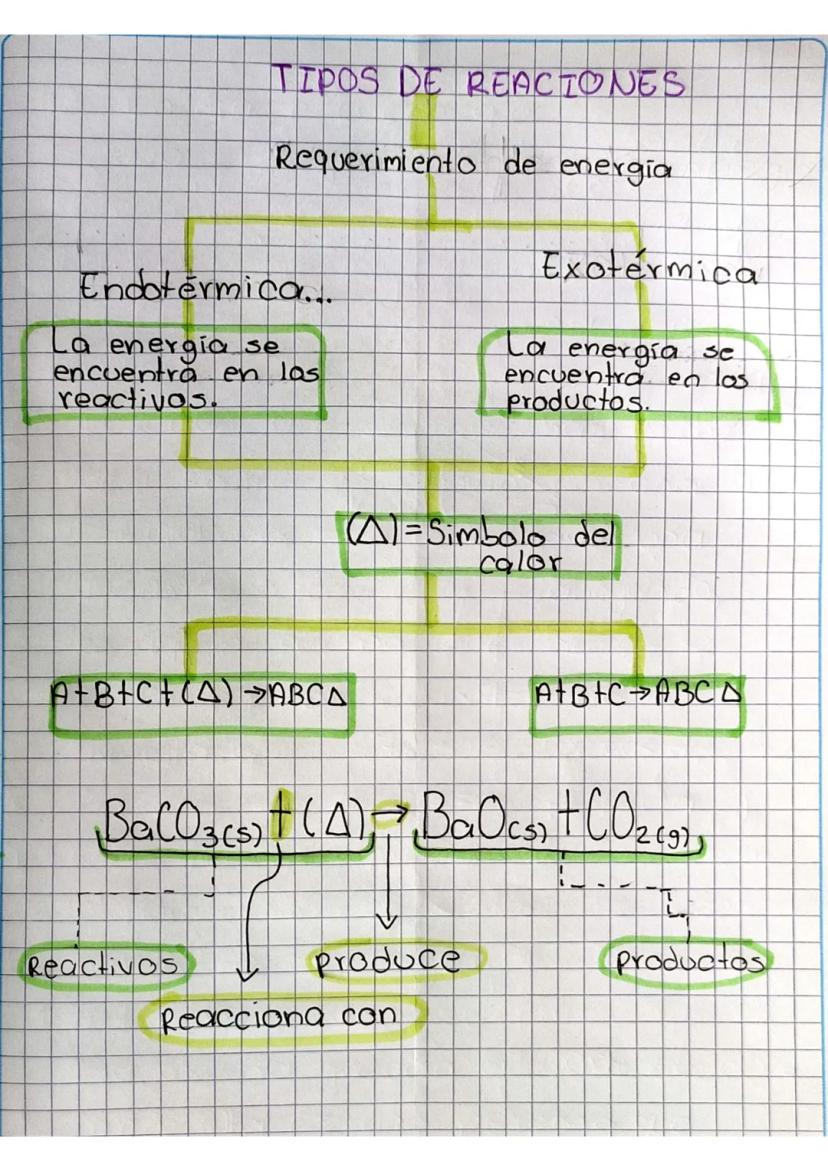 TIPOS DE REACIONES
Requerimiento de energía
Endotérmica...
La energía se
encuentra en los
reactivos.
Exotérmica
La energía se
encuentra en los
productos.
(Δ)=Simbolo del
calor
A+B+C+(Δ)→ABCΔ
A+B+C→ABCΔ
BaCO3(s)+(Δ)→BaO(s)+CO2(g)
Reactivos
produce
productos
Reacciona con